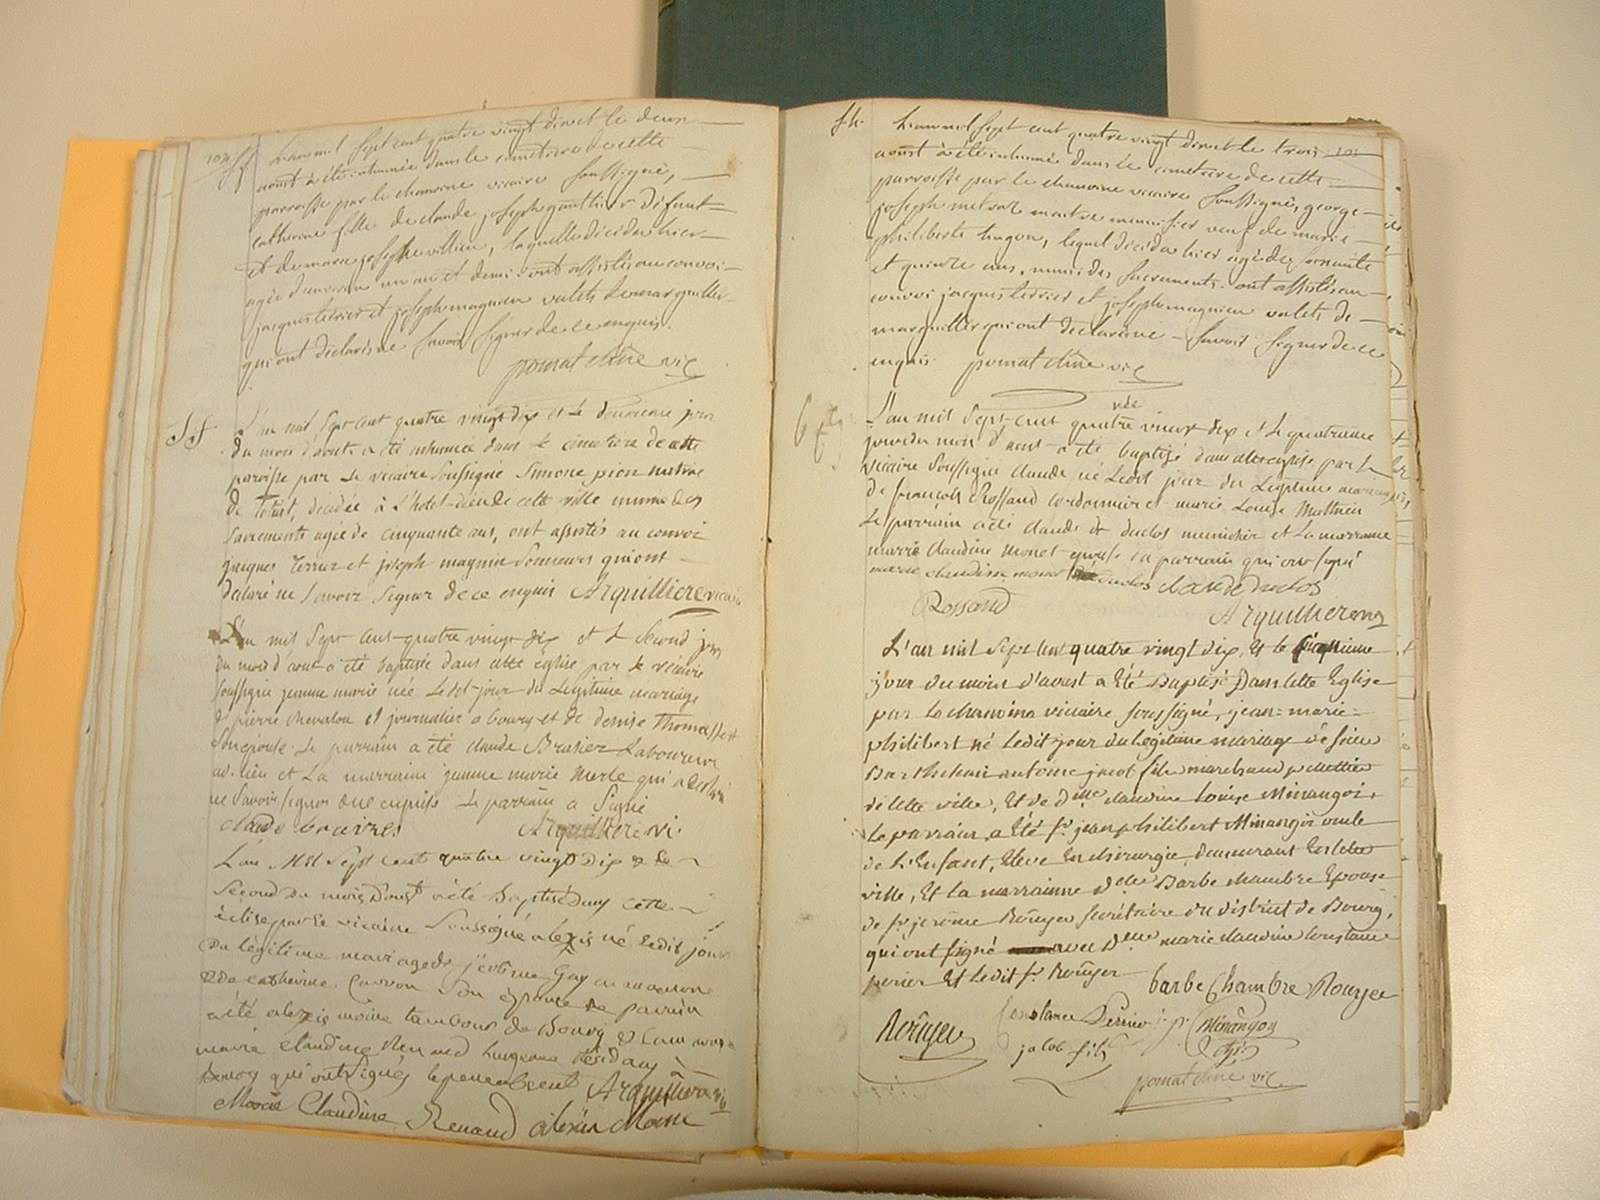 L'an mil sept cent quatre vingt dix et le deux
aoust à été inhumée dans le cimetiere de cette
parroisse par le chanoine vicaire soussigné,
catherine fille de claude joseph gauthier défunt
et de marie josephe villien, laquelle décéda hier
agée d'environ un an et demi. ont assistés au convoi
jacques terrier et joseph magnien valets de marguiller
qui ont déclarés ne savoir signer de ce enquis.
pomat chne vic
L'an mil Sept cent quatre vingt dix et le deuxieme jour
du mois d'aout a été inhumée dans le cimetiere de cette
paroisse par le vicaire Soussigné Simone pion native
de, décédée à L'hotel-dieu de cette ville munie des
Sacrements agée de cinquante ans, ont assistés au convoi
jacques Terrier et joseph magnin Sonneurs qui ont
declaré ne Savoir Signer de ce enquis Arquilliere vicaire
L'an mil Sept cent quatre vingt dix et le Second jour
du mois d'aout a été baptisée dans cette église par le vicaire
Soussigné jeanne marie née Ledit jour du Légitime mariage
de pierre chevalon journalier a bourg et de denise Thomasset
Son epouse. Le parrain a été claude Brasier Laboureur
au lieu et La marraine jeanne marie merle qui a declaré
ne Savoir signer de ce enquise Le parrain a Signé
Arquilliere vi.
L'an Mil Sept cent quatre vingt dix & Le
Second du mois D'aoust a été Baptisé dans cette
eclise par Le vicaire Soussigné alexis né Ledit jour
du légitime mariage de jérôme Gay
& de catherine Carron Son épouse Le parrain
a été alexis moine tambour de Bourg & La marraine
marie claudine Renaud
Bourg qui ont signés Arquilliere vic
Marie Claudine Renaud alexis Moine
54. L'an mil sept cent quatre vingt dix et le trois 105
aoust à été inhumé dans le cimetiere de cette
parroisse par le chanoine vicaire soussigné, george
joseph maitre menuisier veuf de marie
philiberte hugon, lequel décéda hier agé de soixante
et quinze ans, muni des sacrements. ont assistés au
convoi jacques terrier et joseph magnien valets de
marguiller qui ont declarés ne savoir signer de ce
enquis pomat chne vic
L'an mil Sept cent quatre vingt dix et le quatrieme
jour du mois d'aout a été baptisé dans cette eglise par Le
vicaire Soussigné claude né Ledit jour du Légitime mariage
de françois Rossand cordonnier et marie Louise Mathieu
Le parrain a été claude duclos menuisier et La marraine
marie claudine monet epouse du parrain qui ont signé
marie claudine monet duclos claude duclos
Rossand Arquilliere vic
L'an mil Sept Cent quatre vingt dix, Et le Cinquieme
jour du mois d'aoust a Eté Baptisé Dans Cette Eglise
par le chanoine vicaire soussigné, jean-marie-
philibert né Ledit jour du légitime mariage de Sieur
Barthelemi antoine jacob fils marchand pelletier
de Cette ville, Et de Dlle claudine Louise Minangoi,
Le parrain a Eté Sr. jean philibert Minangoi oncle
de L'Enfant, Eleve En chirurgie demeurant En Cette
ville, Et la marrainne Dlle Barbe chambre Epouse
de Sr. jerôme Roüyer Secrétaire du district de Bourg,
qui ont signé avec Dlle marie claudine Constance
perier Et Ledit Sr. Roüyer barbe Chambre Rouyer
Roüyer Constance Perrier j. p. Minangoy
jacob fils
pomat chne vic